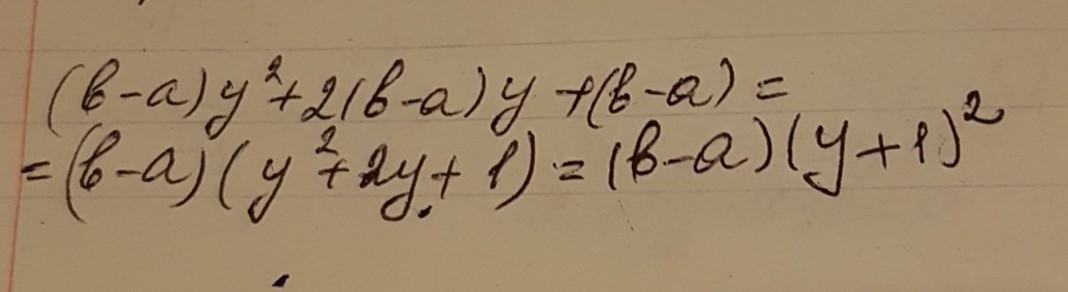 (b-a)y²+2(b-a)y+(b-a)=
=(b-a)(y²+2y+1)=(b-a)(y+1)²